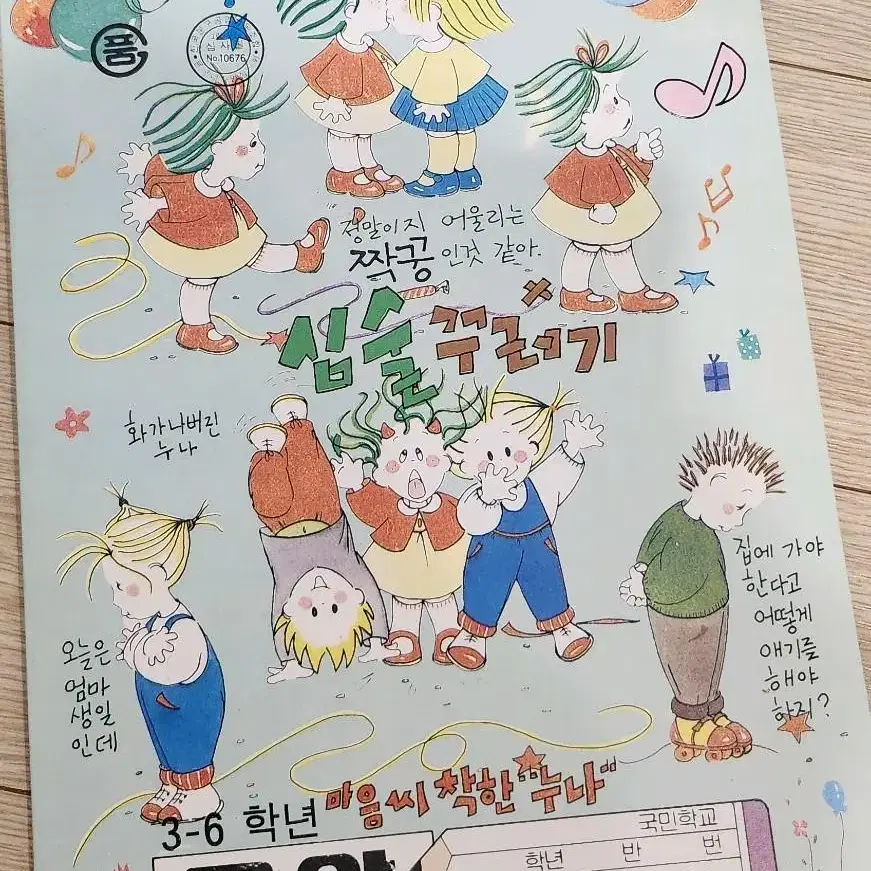 품
심사필
No.10676
정말이지 어울리는
짝꿍 인것 같아.
심술꾸러기
화가나버린
누나
집에 가야
한다고
어떻게
얘기를
해야
하지?
오늘은
엄마
생일
인데
마음씨 착한 "누나"
3-6 학년
국민학교
학년 반 번